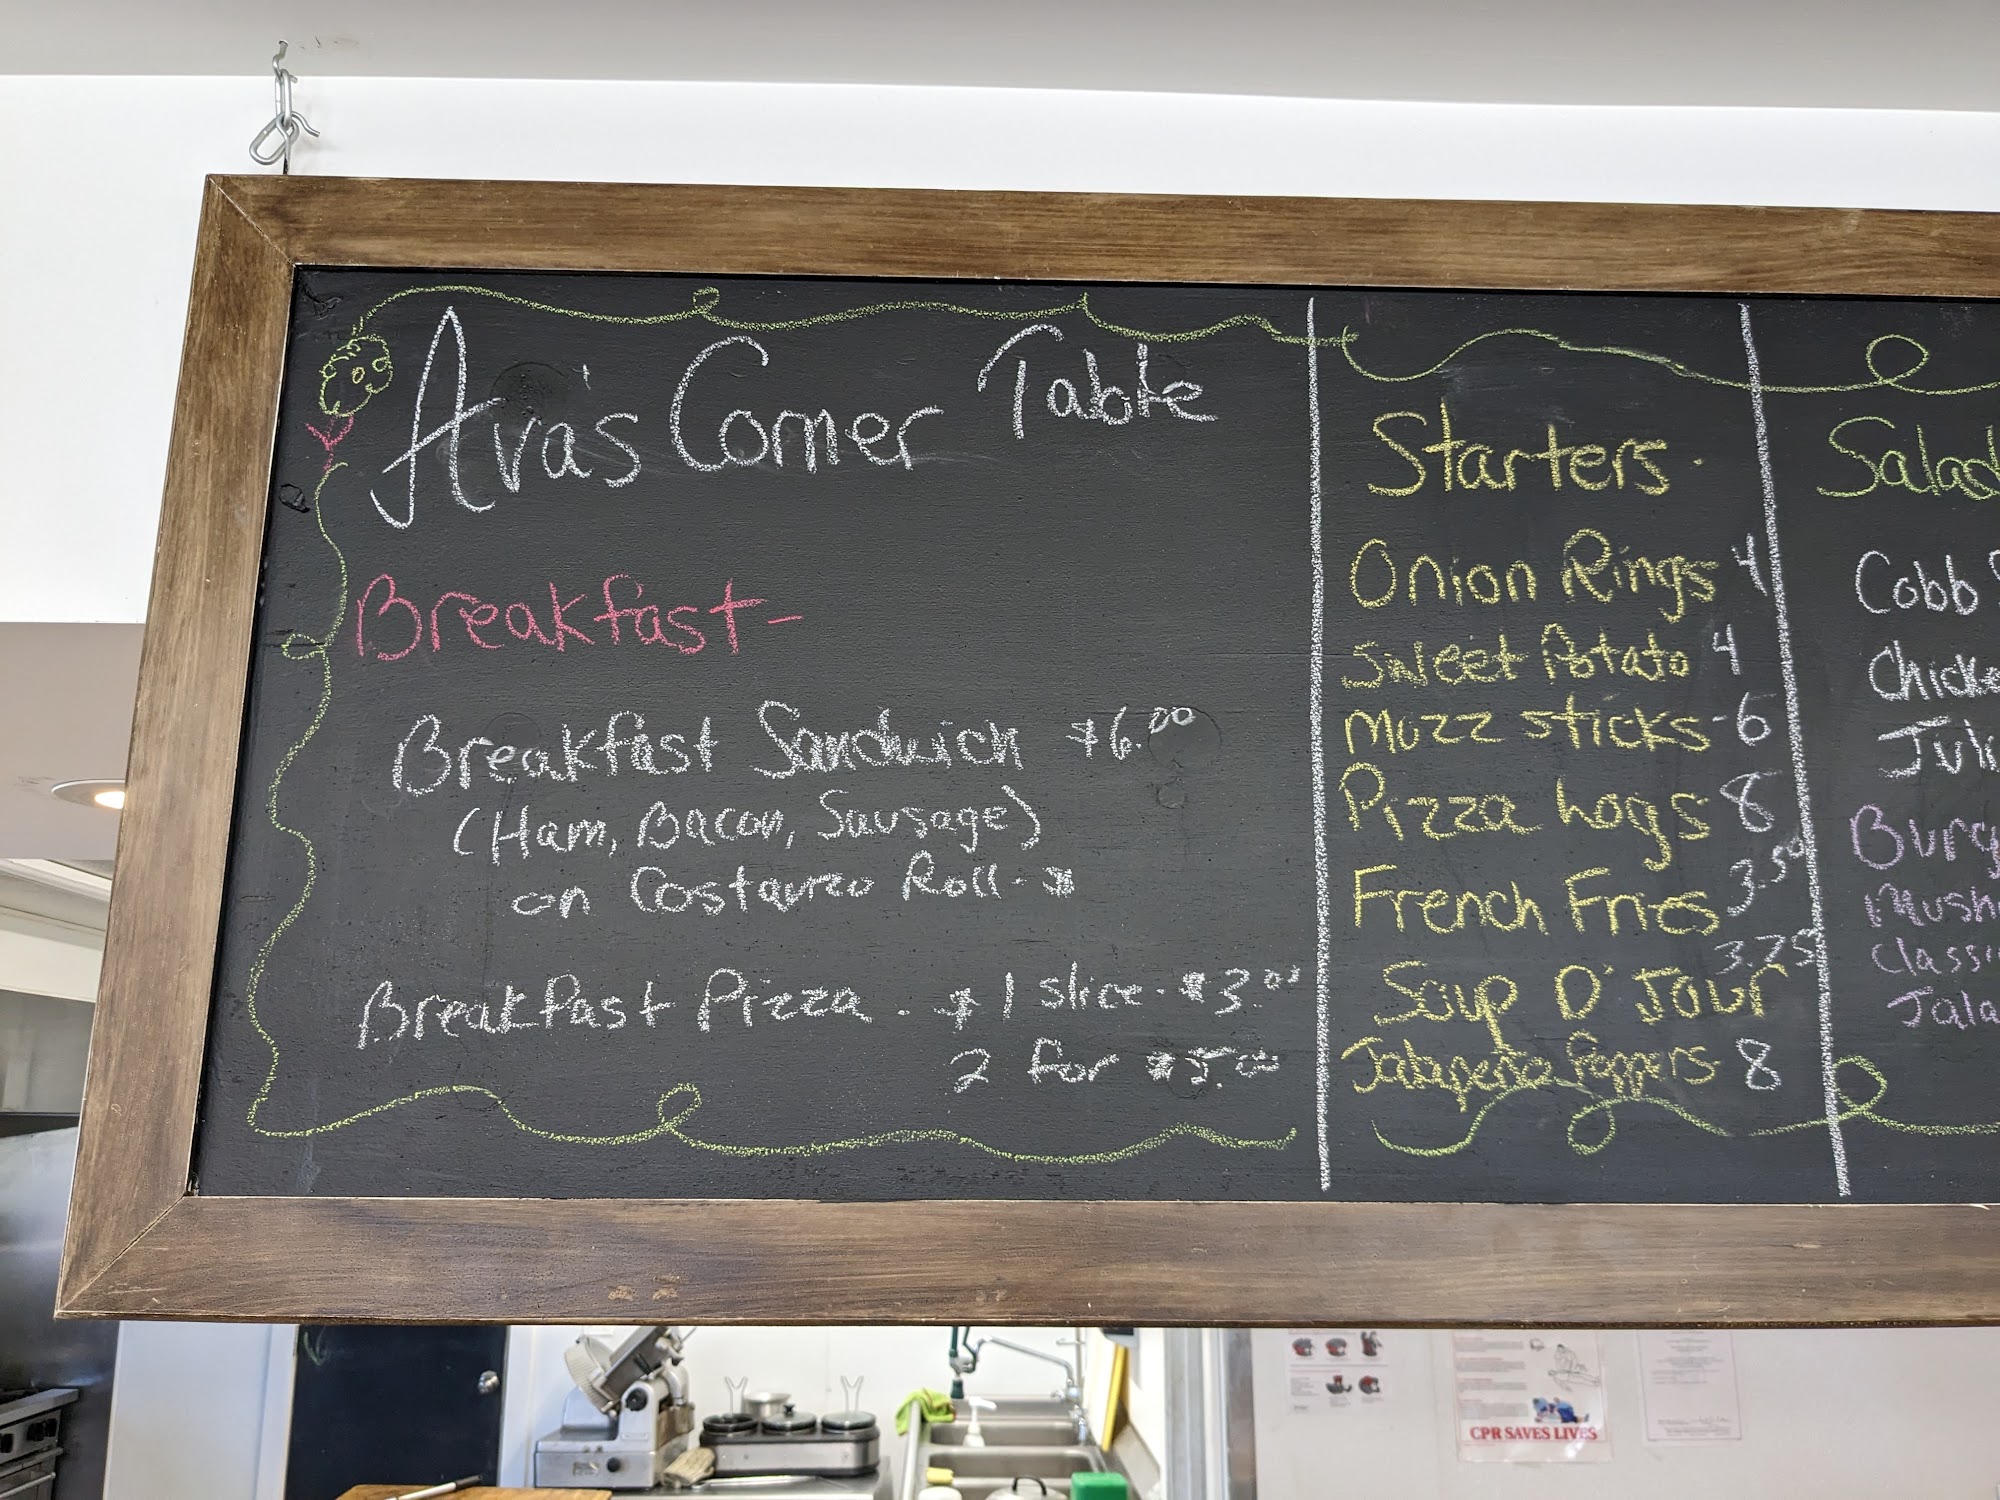 Ava's Corner Table
Breakfast-
Breakfast Sandwich $6.00
(Ham, Bacon, Sausage)
on Costanzo Roll-$
Breakfast Pizza. $1 slice-$3.00
2 for $5.00
Starters.
Onion Rings 4
Sweet Potato 4
Mozz sticks-6
Pizza Logs 8
French Fries 3.50
Soup D'Jour 3.75
Jalapeno Poppers 8
Salad
Cobb
Chicke
Juli
Burg
Mush
Classi
Jala
CPR SAVES LIVES